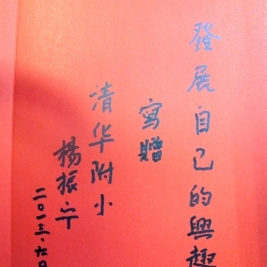 發展自己的興趣
寫贈
清华附小
楊振宁
二〇一三·六